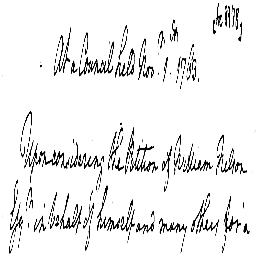 At a Council held Nov.
Upon considering the Petition of William Nelson
Esq.r in behalf of himself and many others for a